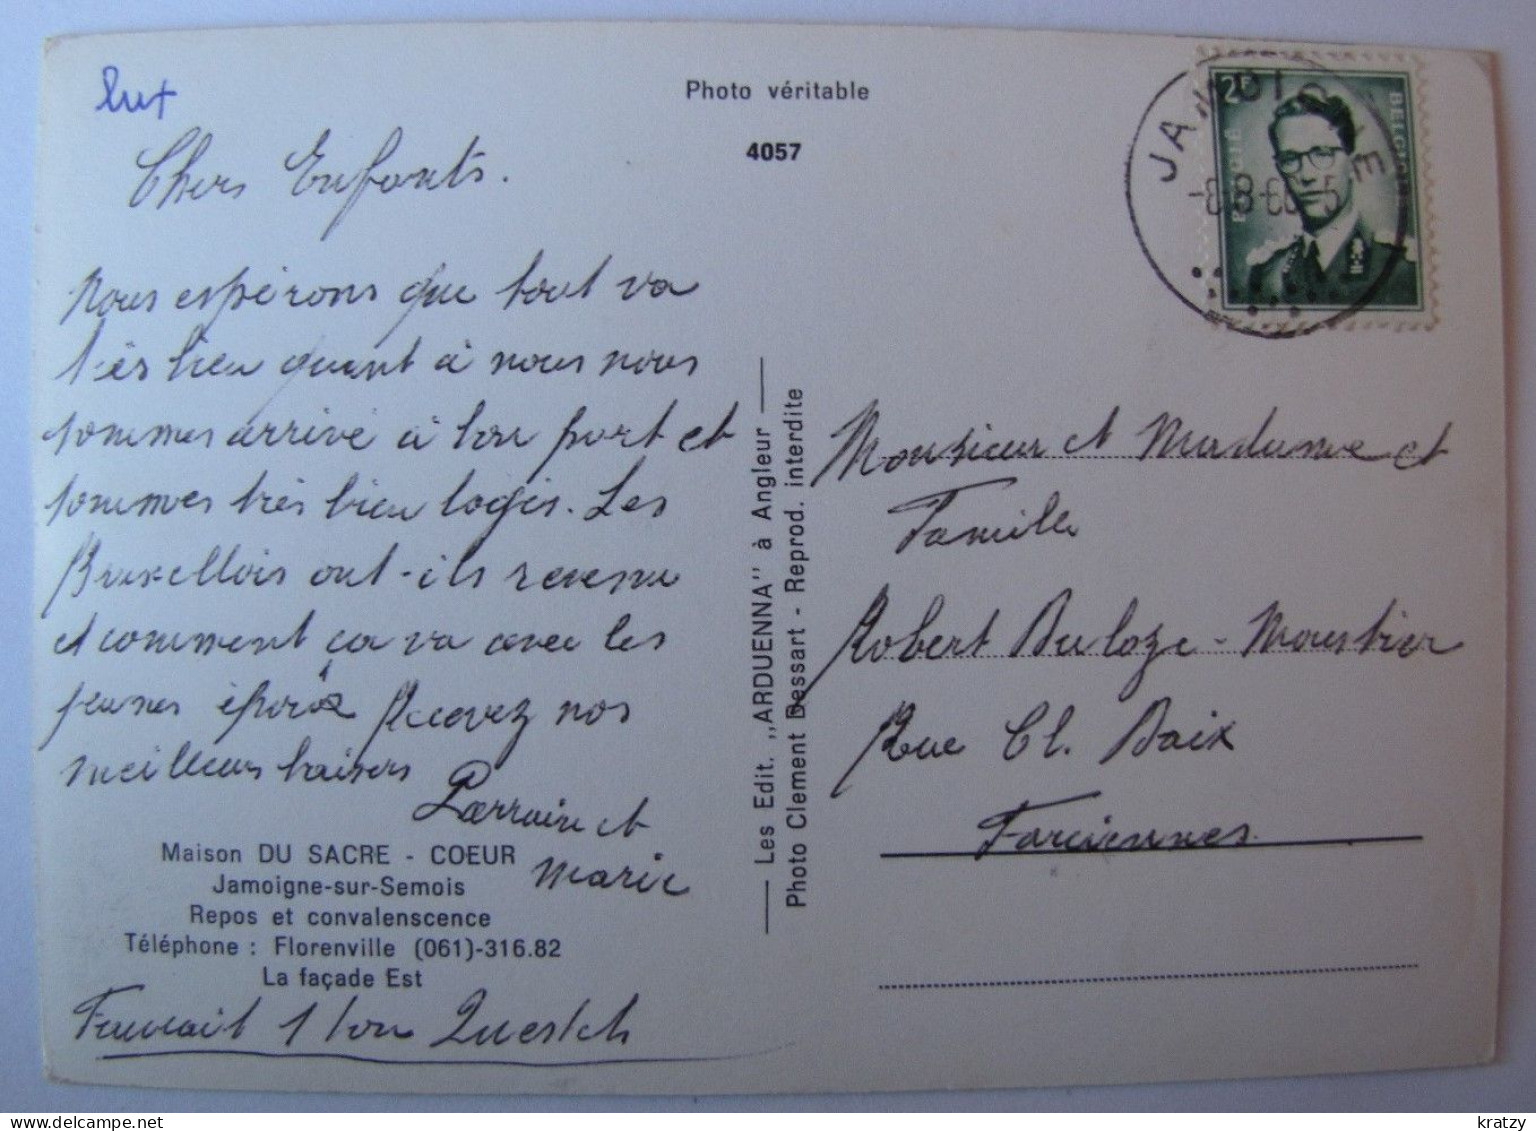 lux
Photo véritable
4057
JAMOIGNE
-8-8-66 5
2F
BELGIQUE
BELGIË
Chers Enfants.
Nous espérons que tout va
très bien quant à nous nous
sommes arrivé à bon port et
sommes très bien logés. Les
Bruxellois ont-ils revenu
et comment ça va avec les
jeunes époux Recevez nos
meilleurs baisers
Parrain et
Marie
Maison DU SACRE - COEUR
Jamoigne-sur-Semois
Repos et convalenscence
Téléphone : Florenville (061)-316.82
La façade Est
1 bon
Les Edit. ,,ARDUENNA'' à Angleur
Photo Clement Dessart - Reprod. interdite
Monsieur et Madame et
Famille
Robert Buloze-Moustier
Rue Cl. Daix
Farciennes
kratzy